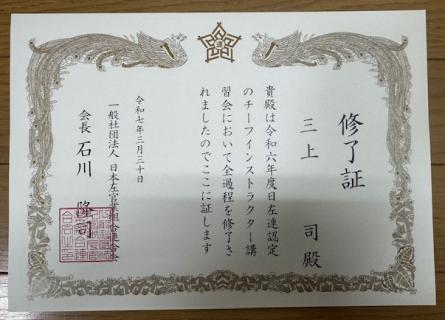 修了証
三上 司殿
貴殿は令和六年度日左連認定
のチーフインストラクター講
習会において全過程を修了さ
れましたのでここに証します
令和七年三月三十日
一般社団法人 日本左官業組合連合会
会長 石川 隆司